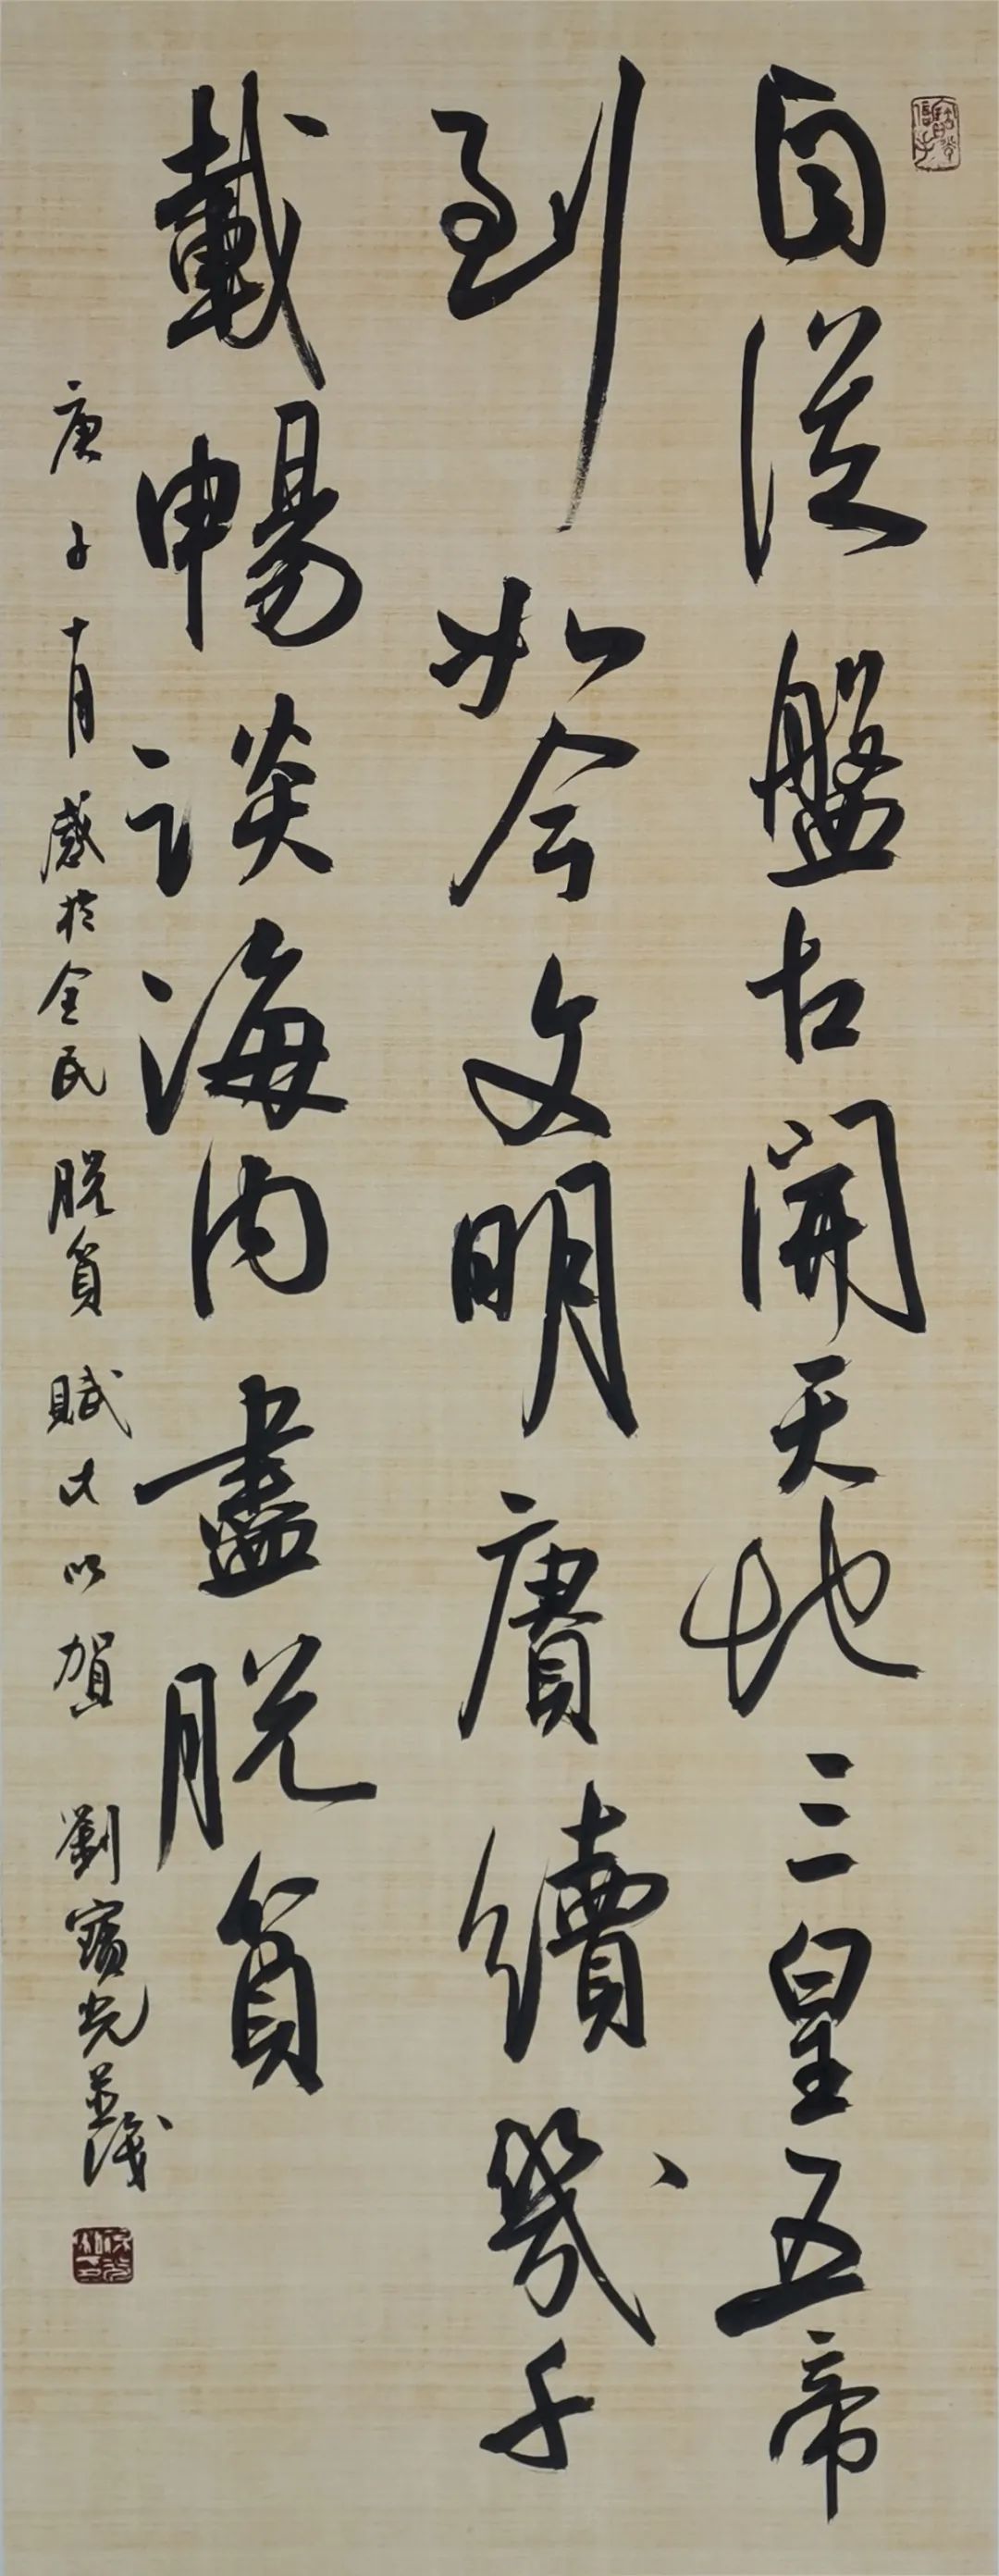 自從盤古開天地三皇五帝
到如今文明賡續幾千
載暢談海内盡脱貧
庚子十月感於全民脱貧賦此以賀劉寶光並識